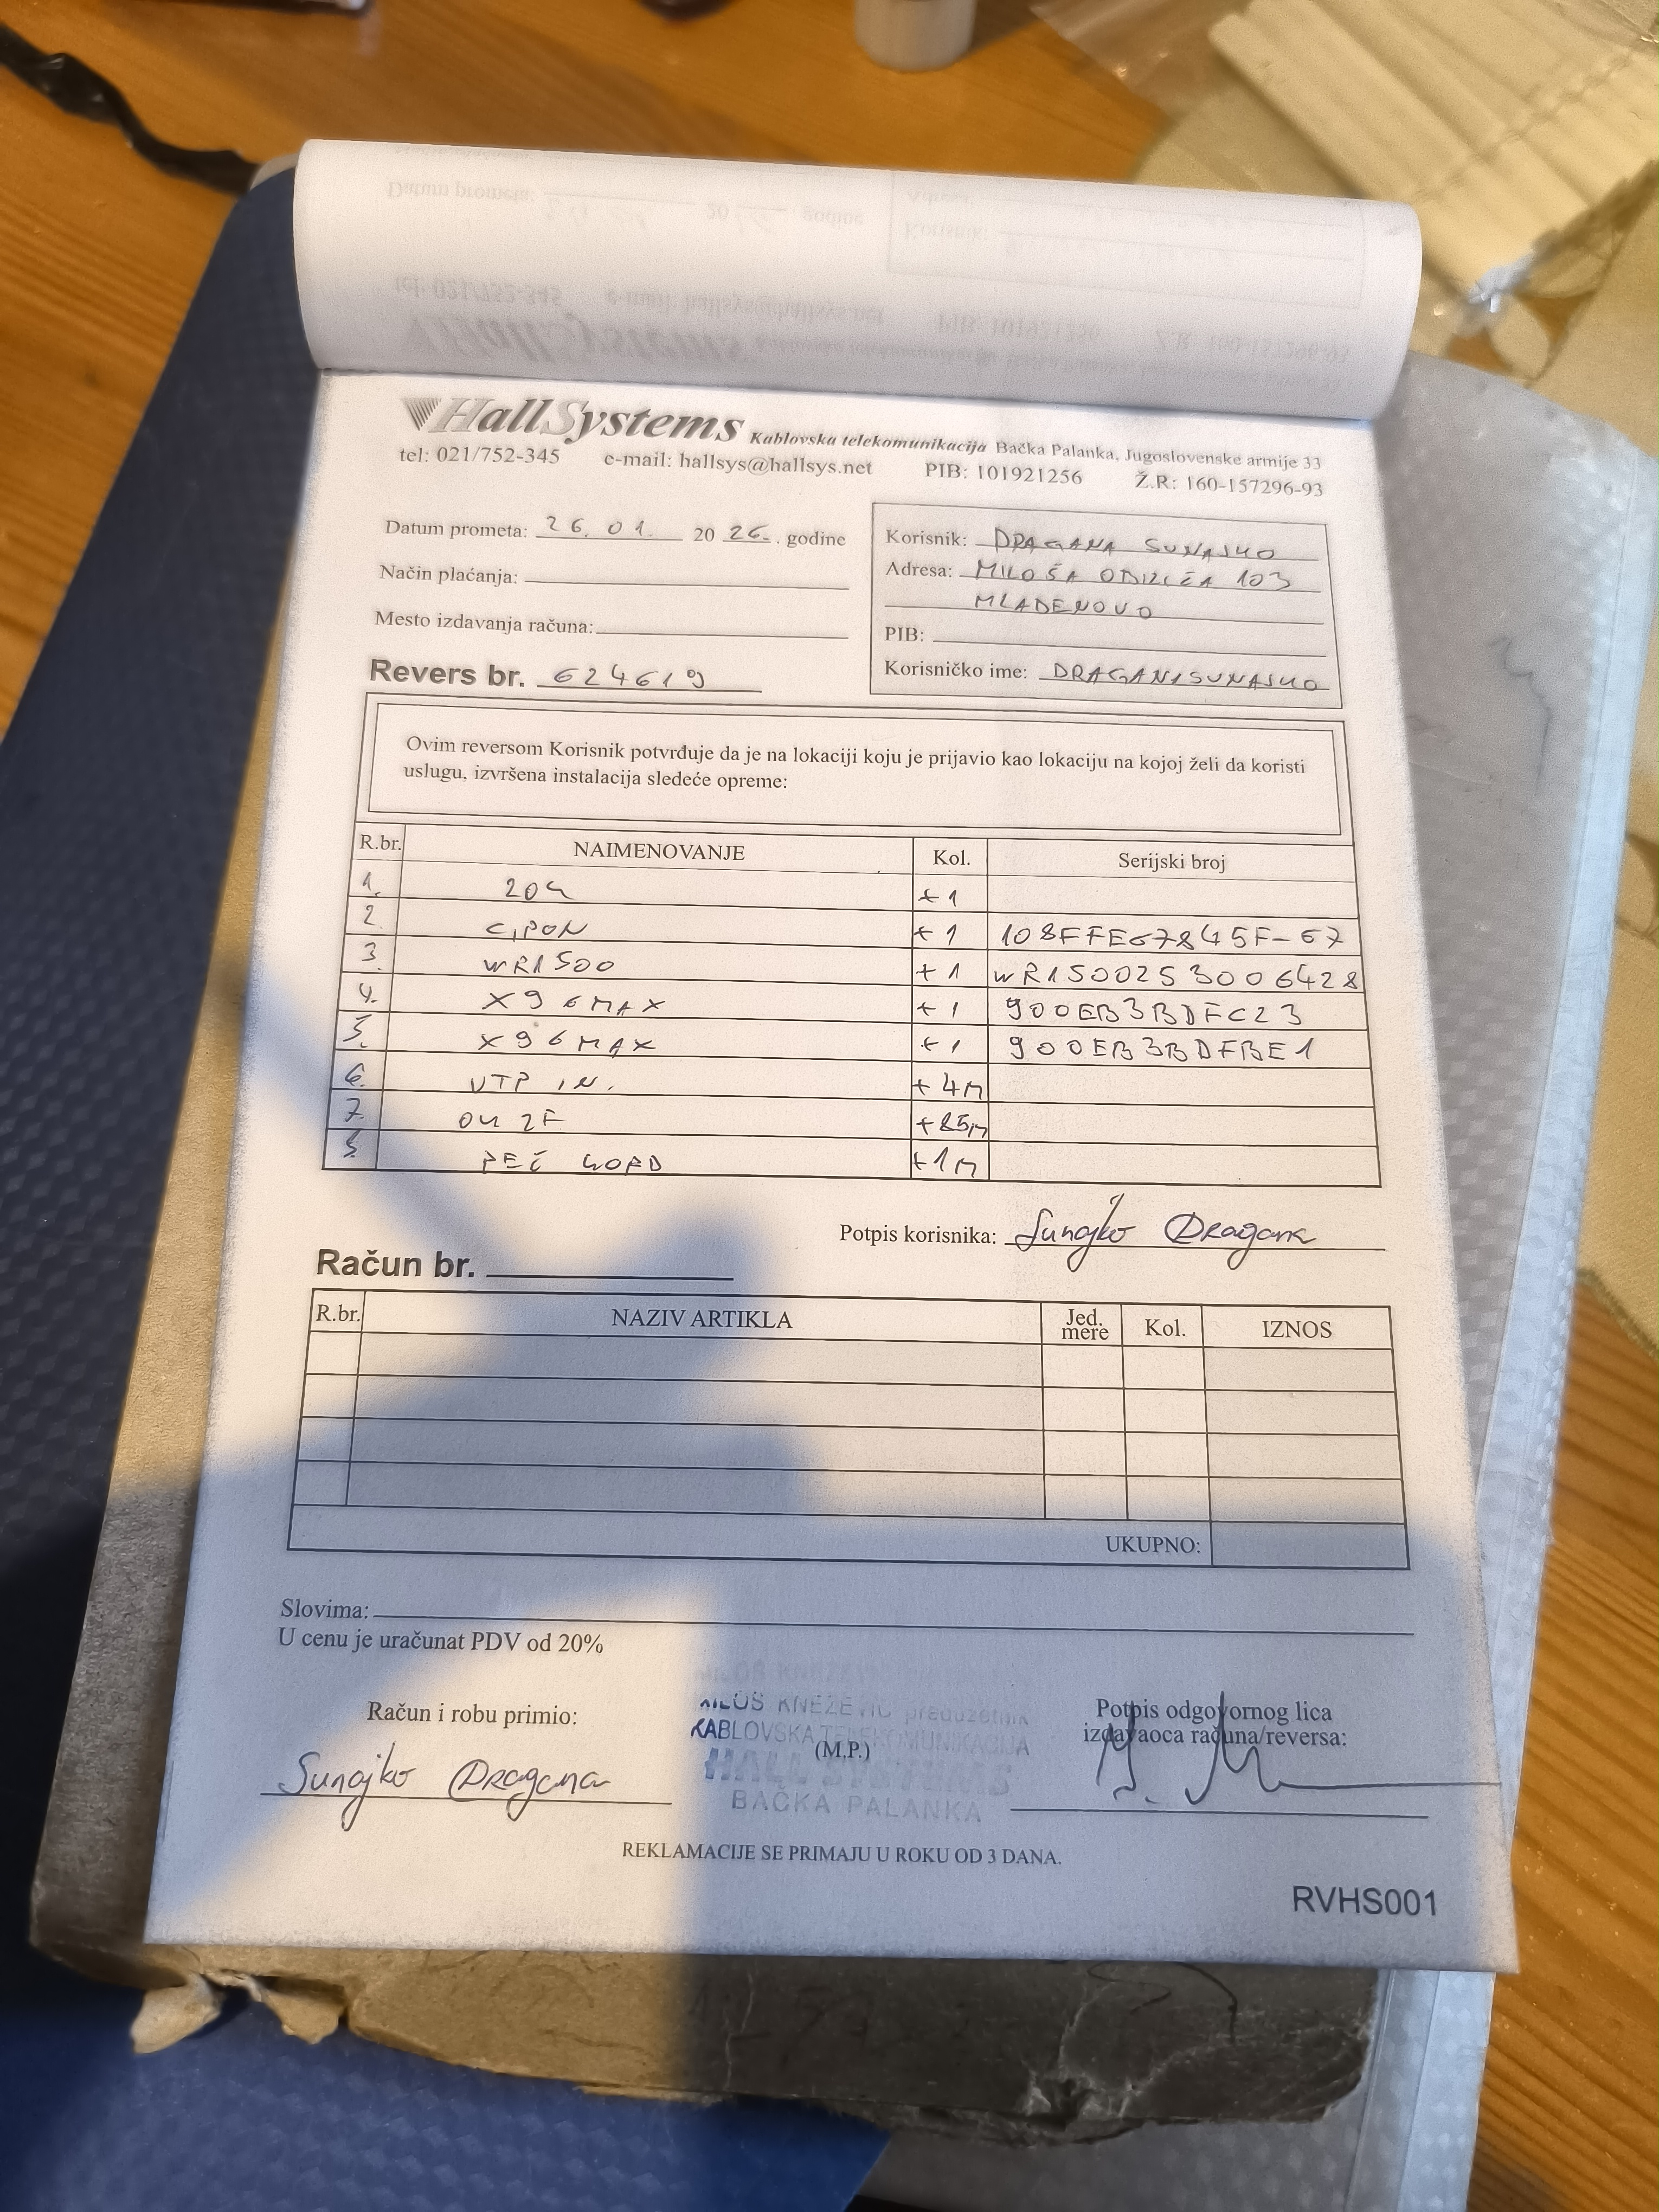 HallSystems Kablovska telekomunikacija Bačka Palanka, Jugoslovenske armije 33
tel: 021/752-345 e-mail: hallsys@hallsys.net PIB: 101921256 Ž.R: 160-157296-93
Datum prometa: 26.01. 20 26. godine
Način plaćanja:
Mesto izdavanja računa:
Revers br. 624619
Korisnik: DRAGANA SUNAJKO
Adresa: MILOŠA OBILIĆA 103
MLADENOVO
PIB:
Korisničko ime: DRAGANASUNAJKO
Ovim reversom Korisnik potvrđuje da je na lokaciji koju je prijavio kao lokaciju na kojoj želi da koristi
uslugu, izvršena instalacija sledeće opreme:
R.br. NAIMENOVANJE Kol. Serijski broj
1. +1
2. +1 108FFE67845F-67
3. WR1500 +1 WR1500253006428
4. X96MAX +1 900EB3BDFC23
5. X96MAX +1 900EB3BDFBE1
6. UTP IN. +4M
7. OK 2F +85M
8. PEČ KORD +1M
Potpis korisnika: Sunajko Dragana
Račun br.
R.br. NAZIV ARTIKLA Jed. mere Kol. IZNOS
UKUPNO:
Slovima:
U cenu je uračunat PDV od 20%
Račun i robu primio:
Sunajko Dragana
MILOŠ KNEŽEVIĆ preduzetnik
KABLOVSKA TELEKOMUNIKACIJA
(M.P.)
HALL SYSTEMS
BAČKA PALANKA
Potpis odgovornog lica
izdavaoca računa/reversa:
REKLAMACIJE SE PRIMAJU U ROKU OD 3 DANA.
RVHS001